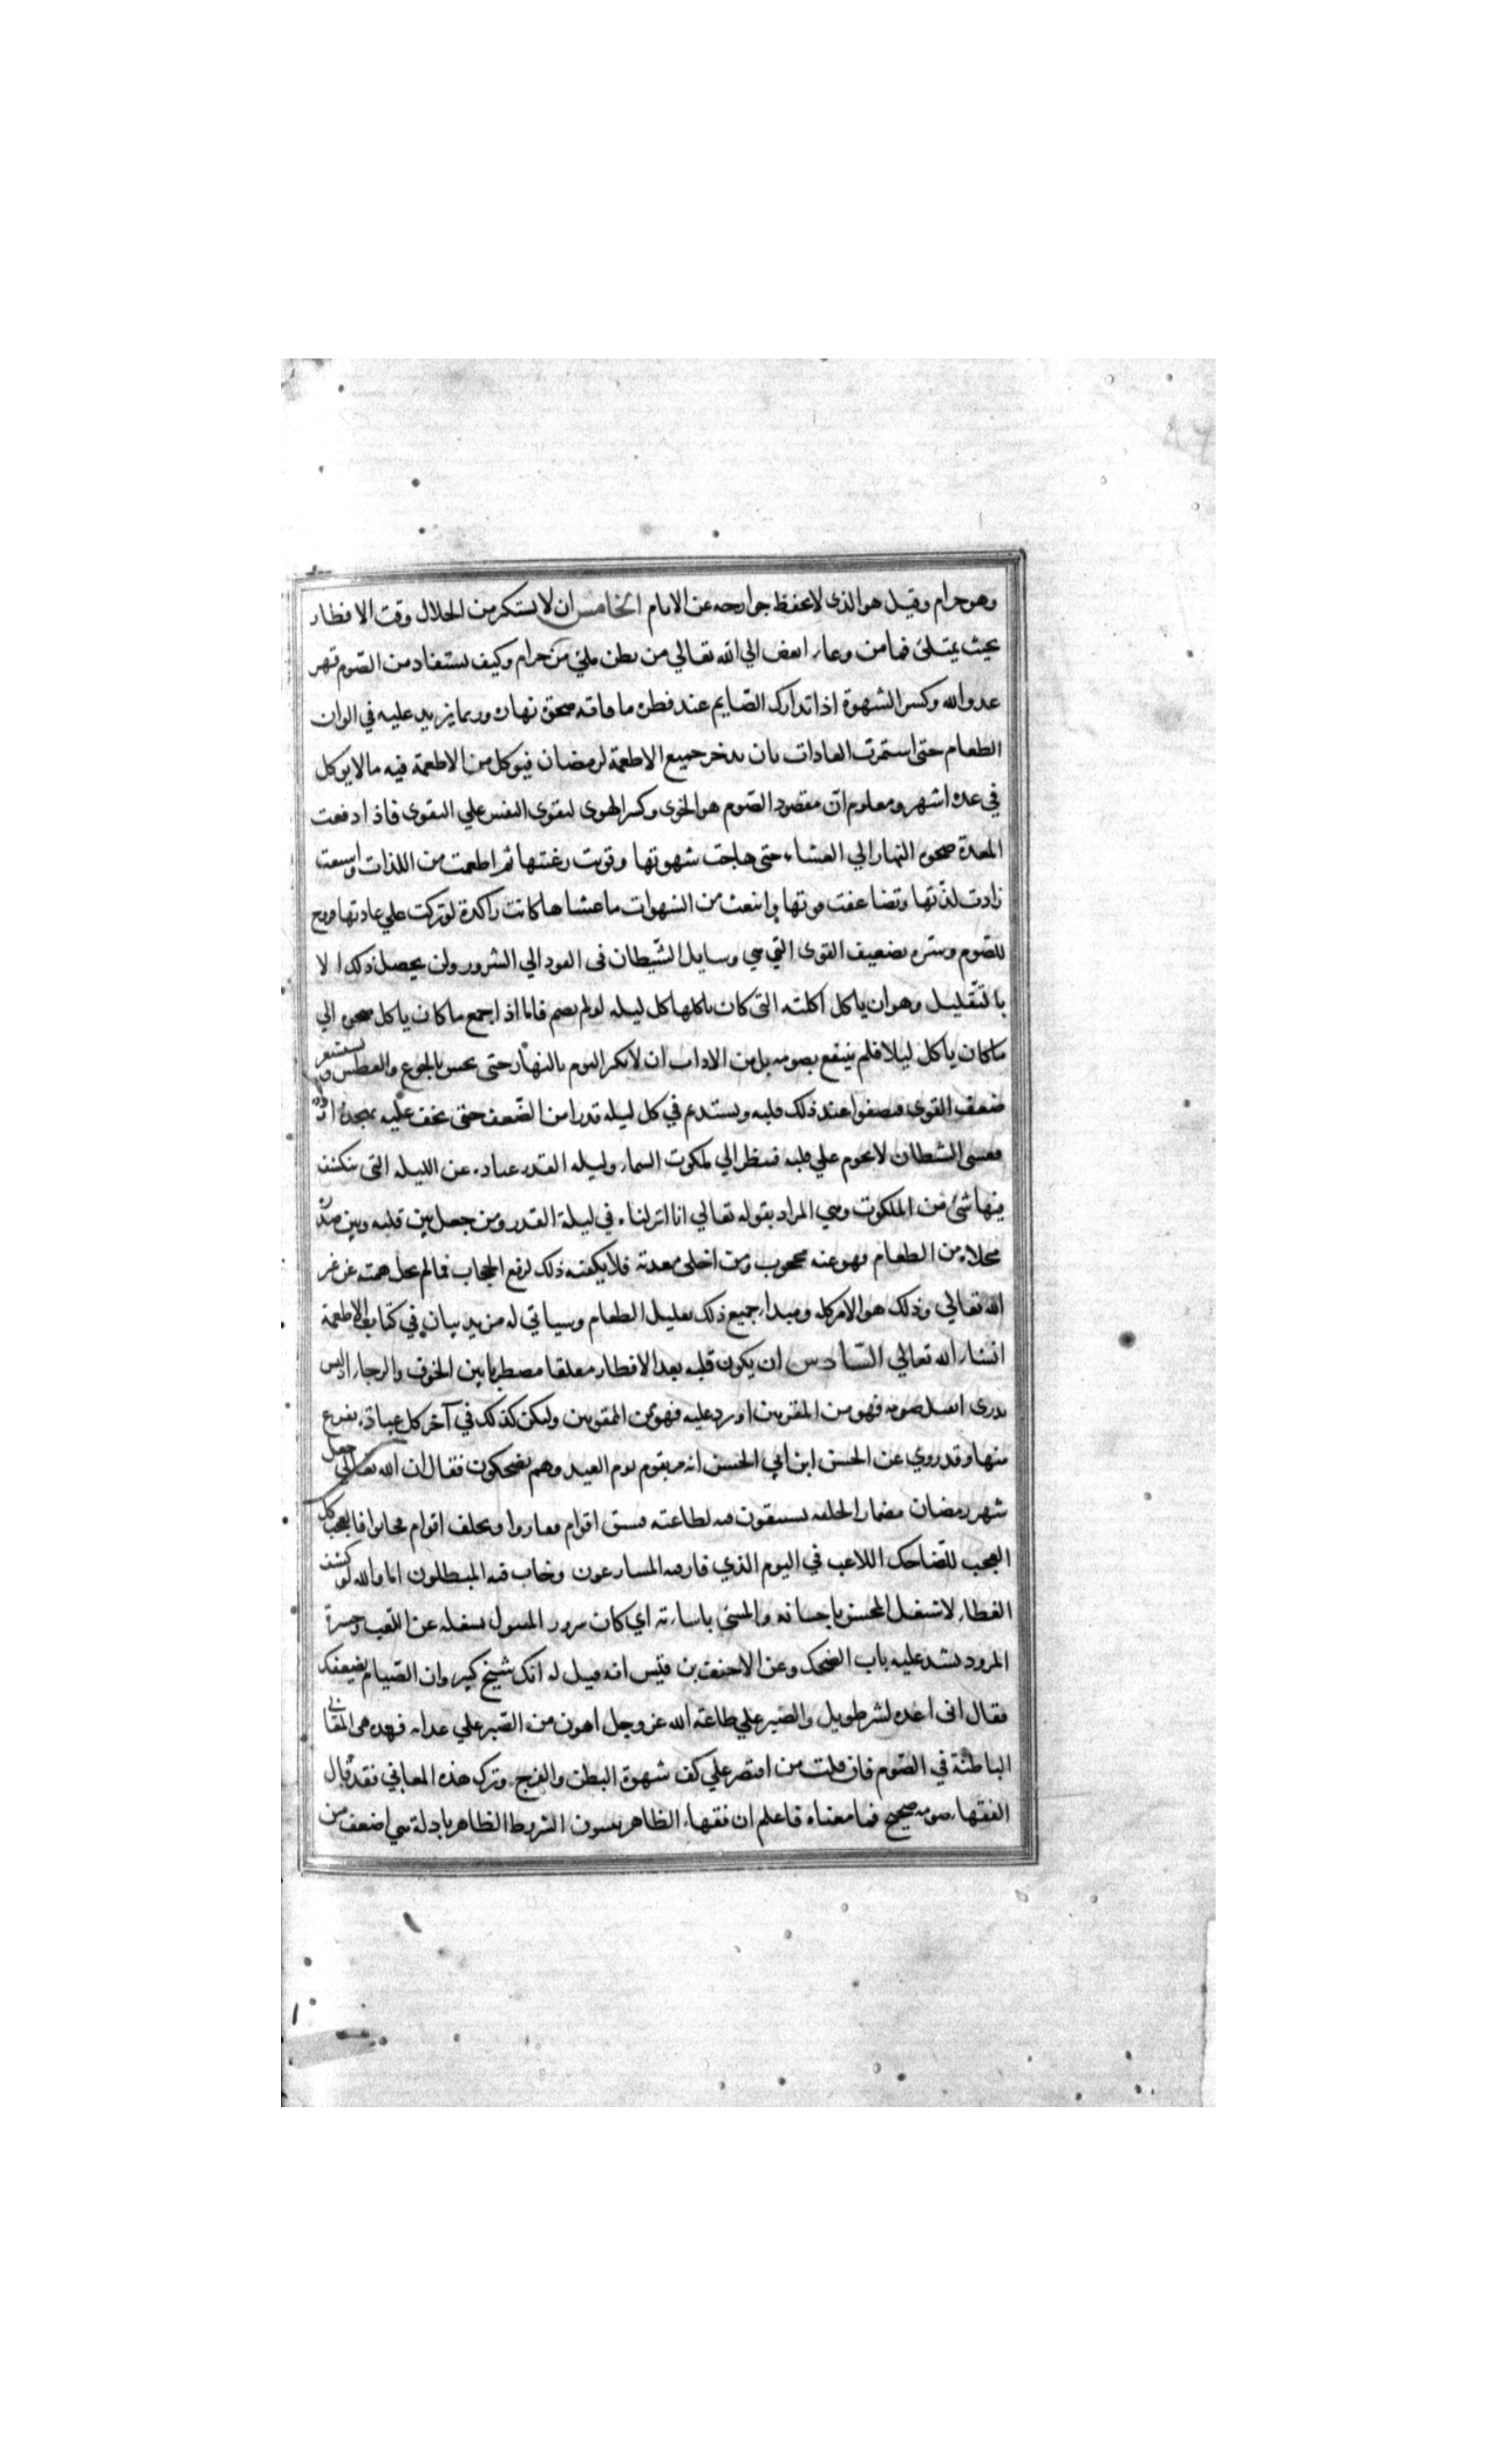 وهو حرام وقيل هو الذى لا يحفظ جوارحه عن الاثام الخامس ان لا يستكثر من الحلال وقت الافطار
بحيث يمتلئ فما من وعاء ابغض الي الله تعالي من بطن ملئ من حرام وكيف يستفاد من الصّوم قهر
عدو الله وكسر الشهوة اذا تدارك الصّايم عند فطره ما فاته ضحوة نهاره وربما يزيد عليه في الوان
الطعام حتى استمرت العادات بان يدخر جميع الاطعمة لرمضان فيوكل من الاطعمة فيه ما لا يوكل
في عدة اشهر ومعلوم انّ مقصود الصّوم هو الخوى وكسر الهوى لتقوى النفس علي التقوى فاذا دفعت
المعدة ضحوة النهار الي العشاء حتى هاجت شهوتها وقويت رغبتها ثم اطعمت من اللذات واسبعت
زادت لذّتها وتضاعفت قوتها وانبعث من الشهوات ما عشاها كانت راكدة لو تركت علي عادتها وروح
للصّوم وسّره تضعيف القوى التي هي وسايل الشّيطان فى العود الي الشرور ولن يحصل ذلك الا
بالتّقليل وهو ان ياكل اكلته التى كان ياكلها كل ليله لو لم يصم فاما اذا جمع ما كان ياكل ضحوه الي
ما كان ياكل ليلا فلم ينتفع بصومه بل من الاداب ان لا يكثر النوم بالنهار حتى يحس بالجوع والعطش ويستشعر
ضعف القوى فيصفوا عند ذلك قلبه ويستديم في كل ليله قدرا من الضّعف حتى يخف عليه تهجده
فعسى الشطان لا يحوم علي قلبه فينظر الي ملكوت السماء وليله القدر عباره عن الليله التى ينكشف
فيها شئ من الملكوت وهي المراد بقوله تعالي انا انزلناه في ليلة القدر ومن جعل بين قلبه وبين صدره
مخلاه من الطعام فهو عنه محجوب ومن اخلى معدته فلا يكفيه ذلك لرفع الحجاب فما لم يخل همته عن غير
الله تعالي وذلك هو الامر كله ومبداء جميع ذلك تقليل الطعام وسياتي له مزيد بيان في كتاب الاطعمة
انشاء الله تعالي السّادس ان يكون قلبه بعد الافطار معلقا مضطربا بين الخوف والرجاء اذ ليس
يدرى ايقبل صومه فهو من المقربين او رد عليه فهو من الممقوتين وليكن كذلك في آخر كل عبادة يفرغ
منها وقد روي عن الحسن ابن ابي الحسن انه مر بقوم يوم العيد وهم يضحكون فقال ان الله تعالي جعل
شهر رمضان مضمارا لخلقه يستبقون فيه لطاعته فسبق اقوام ففازوا وتخلف اقوام فخابوا فالعجب كل
العجب للضّاحك اللاعب في اليوم الذي فاز فيه المسارعون وخاب فيه المبطلون اما والله لو كشف
الغطاء لاشتغل المحسن باحسانه والمسئ باساءته اي كان سرور المقبول يشغله عن اللعب وحسرة
المردود تشد عليه باب الضحك وعن الاحنف بن قيس انه قيل له انك شيخ كبير وان الصّيام يضعفك
فقال انى اعده لشر طويل والصّبر علي طاعة الله عز وجل اهون من الصّبر علي عذابه فهذه هى المعاني
الباطنة في الصّوم فان قلت من اقتصر علي كف شهوة البطن والفرج وترك هذه المعاني فقد قال
الفقهاء صومه صحيح فما معناه فاعلم ان فقهاء الظاهر يثبتون الشروط الظاهر بادلة هي اضعف من